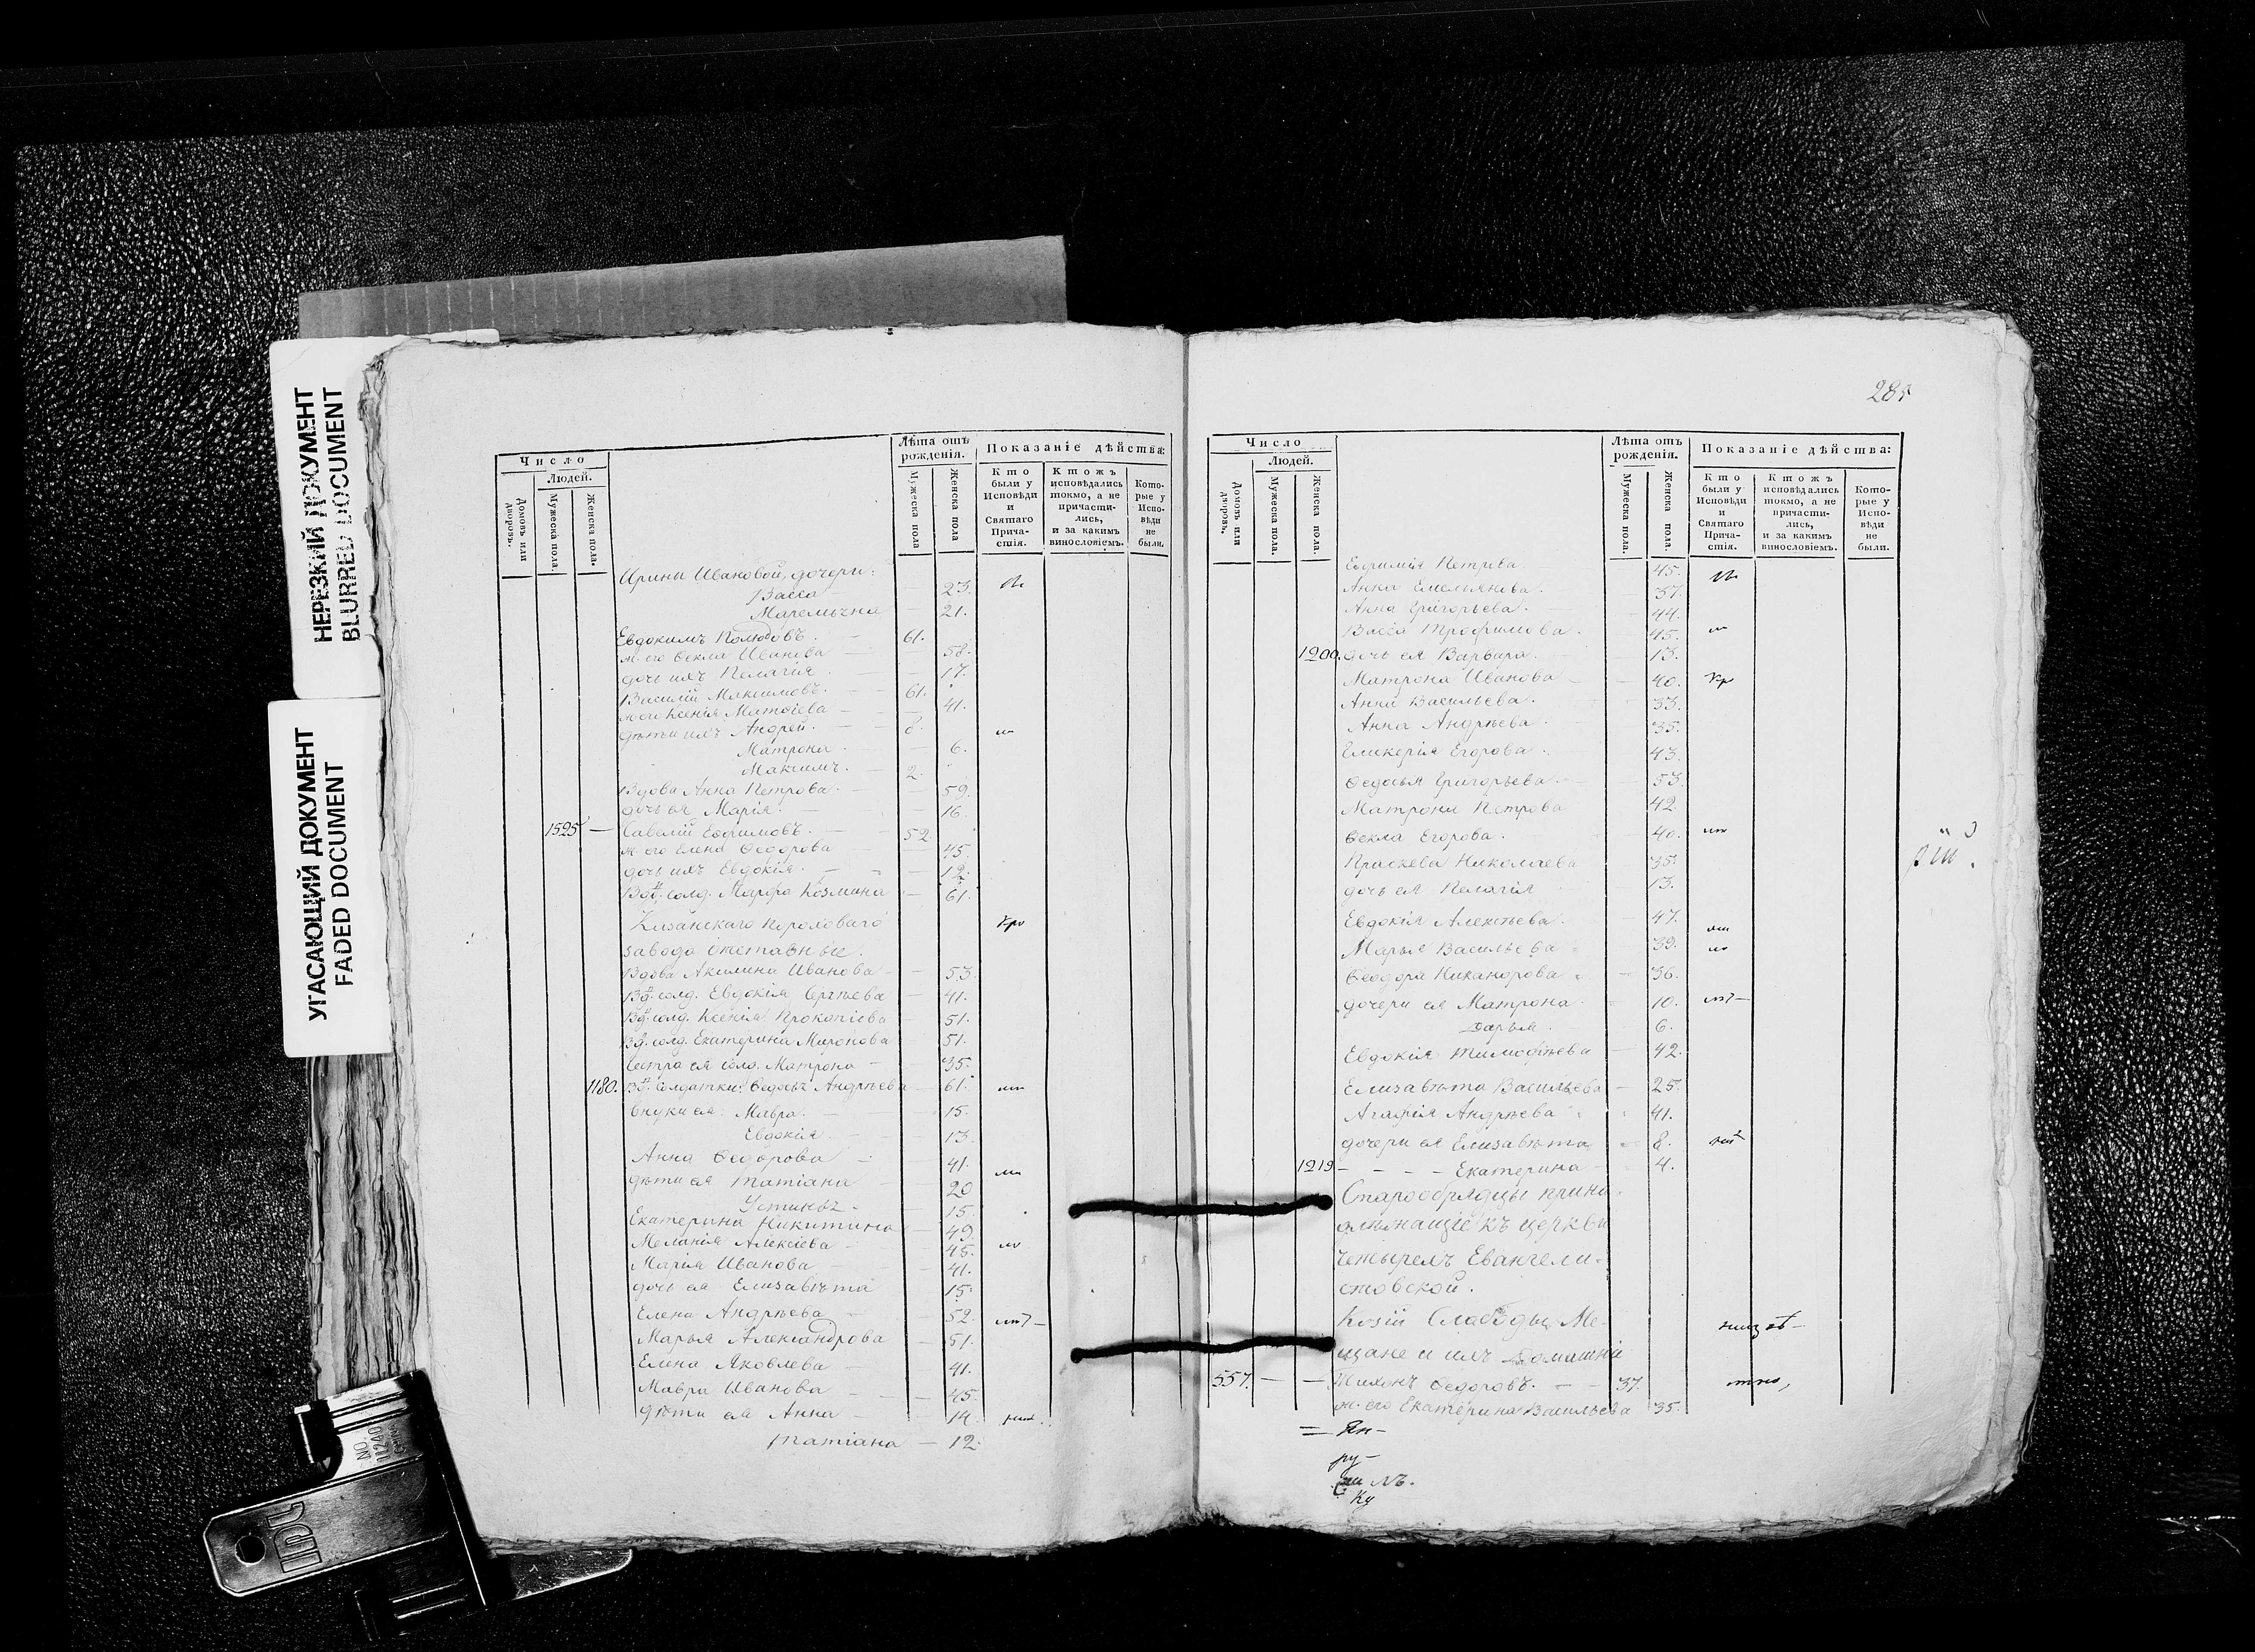 НЕРЕЗКИЙ ДОКУМЕНТ
BLURRED DOCUMENT
УГАСАЮЩИЙ ДОКУМЕНТ
FADED DOCUMENT
Число
Людей.
Домовъ или дворовъ.
Мужеска пола.
Женска пола.
Лѣта отъ рожденія.
Мужеска пола
Женска пола
Показаніе дѣйства:
Кто были у Исповѣди и Святаго Причастія.
Ктожъ исповѣдались токмо, а не причастились, и за какимъ винословіемъ.
Которые у Исповѣди не были.
Ирины Ивановой дочери:
Васса 23.
21.
Евдокимъ 61.
ж. его Ѳекла Иванова 58.
дочь ихъ Пелагія 17.
Василій Максимовъ. 61.
ж его Ксенія Матѳіева 41.
дѣти ихъ Андрей. 8.
Матрона 6.
Максимъ. 2.
Вдова Анна Петрова. 59.
дочь ея Марія. 16.
1525 — Савелій Ефимовъ. 52
ж его Елена Ѳедорова 45.
дочь ихъ Евдокія. 12.
Вд. солд. Марфа Козмина 61.
Казанскаго Пороховаго
завода отставные.
Вдова Акилина Иванова 53.
Вд. солд. Евдокія Сергѣева 41.
Вд. солд. Ксенія Прокопіева 51.
Вд. солд. Екатерина Миронова 51.
сестра ея солд. Матрона 35.
1180. Вд. солдатки: Ѳедосья Андрѣева 61.
внуки ея: Мавра. 15.
Евдокія 13.
Анна Ѳедорова 41.
дѣти ея Татіана 20
15.
Екатерина Никитина 49.
Меланія Алексіева 45.
Марія Иванова 41.
дочь ея Елизавѣта 15.
Елена Андрѣева 52.
Марья Александрова 51.
Елена Яковлева 41.
Мавра Иванова 45.
дѣти ея Анна 14.
Татіана 12.
285
Число
Людей.
Домовъ или дворовъ.
Мужеска пола.
Женска пола.
Лѣта отъ рожденія.
Мужеска пола.
Женска пола.
Показаніе дѣйства:
Кто были у Исповѣди и Святаго Причастія.
Ктожъ исповѣдались токмо, а не причастились, и за какимъ винословіемъ.
Которые у Исповѣди не были.
Петрова 45.
Анна Емельянова. 37.
Анна Григорьева. 44.
Васса Трофимова. 45.
1200. дочь ея Варвара. 13.
Матрона Иванова 40.
Анна Васильева. 33.
Анна Андрѣева 35.
Гликерія Егорова. 43.
Ѳедосья Григорьева. 53.
Матрона Петрова 42.
Ѳекла Егорова. 40.
Праскева Николаева 35.
дочь ея Пелагія 13.
Евдокія Алексѣева. 47.
Марья Васильева 39.
Ѳеодора Никанорова 36.
дочери ея Матрона. 10.
Дарья. 6.
Евдокія Тимофѣева 42.
Елизавѣта Васильева 25.
Агафія Андрѣева 41.
дочери ея Елизавѣта 8.
1219 - - - - Екатерина 4.
Старообрядцы прина-
длежащіе къ церкви
четырехъ Евангели-
стовской.
Козій Слободы Ме-
щане и ихъ Домашни
557. — — Тихонъ Ѳедоровъ. 37.
ж. его Екатерина Васильева 35.